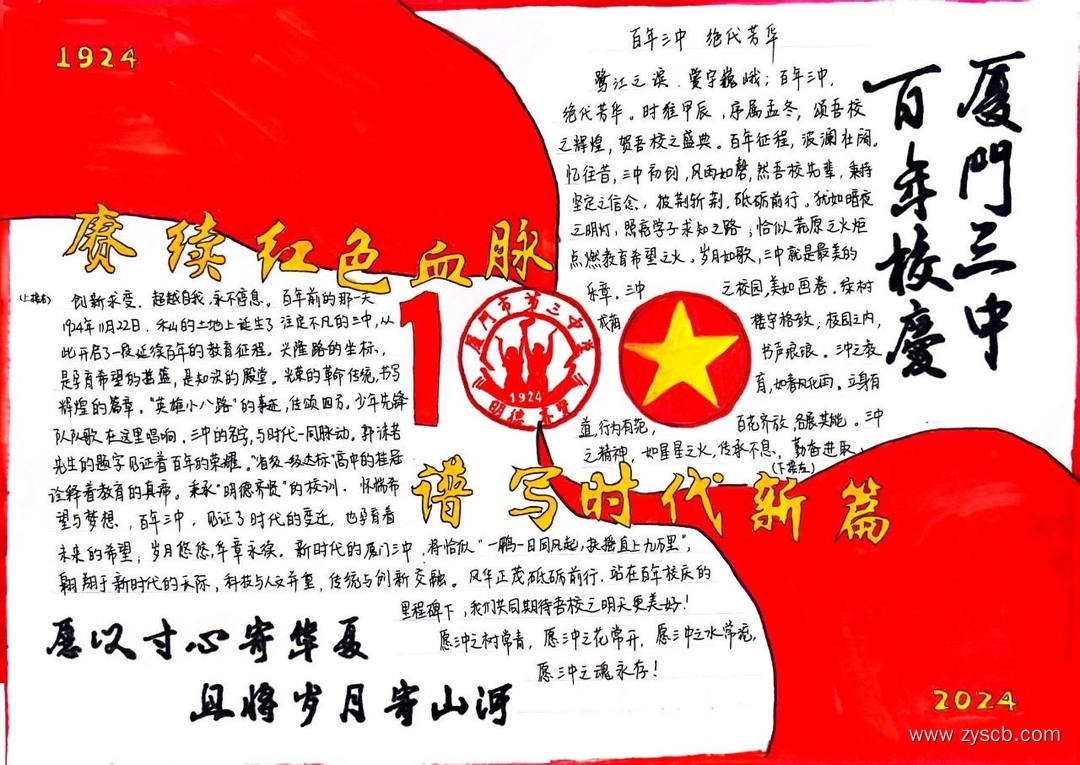 1924
百年三中 绝代芳华
鹭江之滨、黉宇巍峨；百年三中，
绝代芳华。时维甲辰，序属孟冬，颂吾校
之辉煌，贺吾校之盛典。百年征程，波澜壮阔。
忆往昔，三中初创，风雨如磐，然吾校先辈，秉持
坚定之信念，披荆斩荆，砥砺前行。犹如暗夜
之明灯，照亮学子求知之路；恰似荒原之火炬
点燃教育希望之火。岁月如歌，三中就是最美的
乐章。三中之校园，美如画卷。绿树
成荫 楼宇格致；校园之内，
书声琅琅。三中之教
育，如春风化雨。立身有
道，行为有范， 百花齐放，各展其能。三中
之精神，如星星之火，传承不息，勤奋进取、
(下接左)
厦門三中
百年校慶
赓续红色血脉
10
厦门市第三中学
1924
明德 齐贤
谱写时代新篇
(上接右) 创新求变、超越自我，永不停息。百年前的那一天
1924年11月22日，禾山的土地上诞生了注定不凡的三中，从
此开启了一段延续百年的教育征程。兴隆路的坐标、
是孕育希望的摇篮，是知识的殿堂。光荣的革命传统，书写
辉煌的篇章。"英雄小八路"的事迹，传颂四方。少年先锋
队队歌在这里唱响，三中的名字，与时代一同脉动。郭沫若
先生的题字见证着百年的荣耀。"省级一级达标"高中的桂冠
诠释着教育的真谛。秉承"明德齐贤"的校训、怀揣希
望与梦想、百年三中、见证了时代的变迁，也孕育着
未来的希望；岁月悠悠，华章永续。新时代的厦门三中，将恰似"一鹏一日同风起，扶摇直上九万里"，
翱翔于新时代的天际，科技与人文并重，传统与创新交融。风华正茂砥砺前行，站在百年校庆的
里程碑下，我们共同期待吾校之明天更美好！
愿三中之树常青，愿三中之花常开，愿三中之水常流，
愿三中之魂永存！
愿以寸心寄华夏
且将岁月寄山河
2024
www.zyscb.com